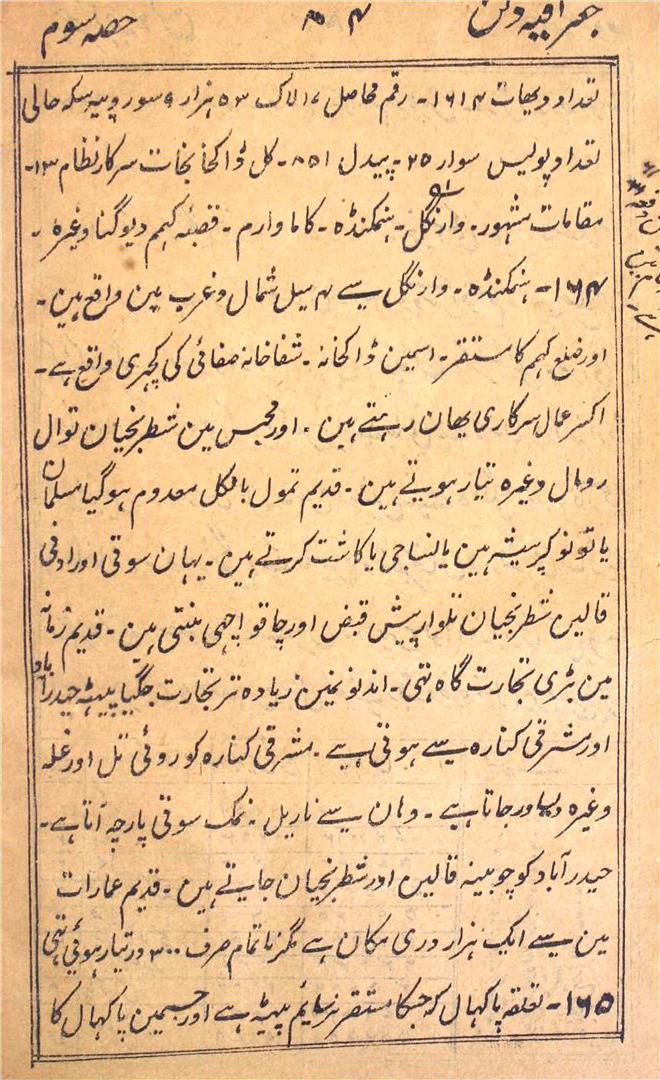 جغرافیہ دکن ۸۴ حصہ سوم
تعداد دیہات ۱۶۱۴۔ رقم محاصل ۱۷ لاک ۵۳ ہزار ۹ سو روپیہ سکہ حالی
تعداد پولیس سوار ۲۵۔ پیدل ۸۵۱۔ کل ڈاکخانجات سرکار نظام ۱۳۔
مقامات مشہور۔ وارنگل۔ ہنمکنڈہ۔ کاماوارم۔ قصبہ کہمم دیوگنا وغیرہ۔
۱۶۴۔ ہنمکنڈہ۔ وارنگل سے ۴ میل شمال و غرب مین واقع ہین۔
اور ضلع کہمم کا مستقر۔ اسمین ڈاکخانہ۔ شفاخانہ صفائی کی کچہری واقع ہے۔
اکثر عمال سرکاری یہان رہتے ہین۔ اور محبس مین شطرنجیان توال
رومال وغیرہ تیار ہوتے ہین۔ قدیم تمول بالکل معدوم ہوگیا مسلمان
یا تو نوکر پیشہ ہین یا نساجی یا کاشت کرتے ہین۔ یہان سوتی اور ادنی
قالین شطرنجیان تلوار پیش قبض اور چاقو اچہی بنتی ہین۔ قدیم زمانہ
مین بڑی تجارت گاہ تہی۔ اندنونمین زیادہ تر تجارت جگیا پیٹہ حیدرآباد
اور مشرقی کنارہ سے ہوتی ہے۔ مشرقی کنارہ کو روئی تل اور غلہ
وغیرہ دساور جاتا ہے۔ وہان سے ناریل۔ نمک سوتی پارچہ آتا ہے۔
حیدرآباد کو چوبینہ قالین اور شطرنجیان جاتے ہین۔ قدیم عمارات
مین سے ایک ہزار دری مکان ہے مگر ناتمام صرف ۳۰۰ در تیار ہوئی تہی
۱۶۵۔ تعلقہ پاکہال کہ جسکا مستقر پیٹہ ہے اور جسمین پاکہال کا